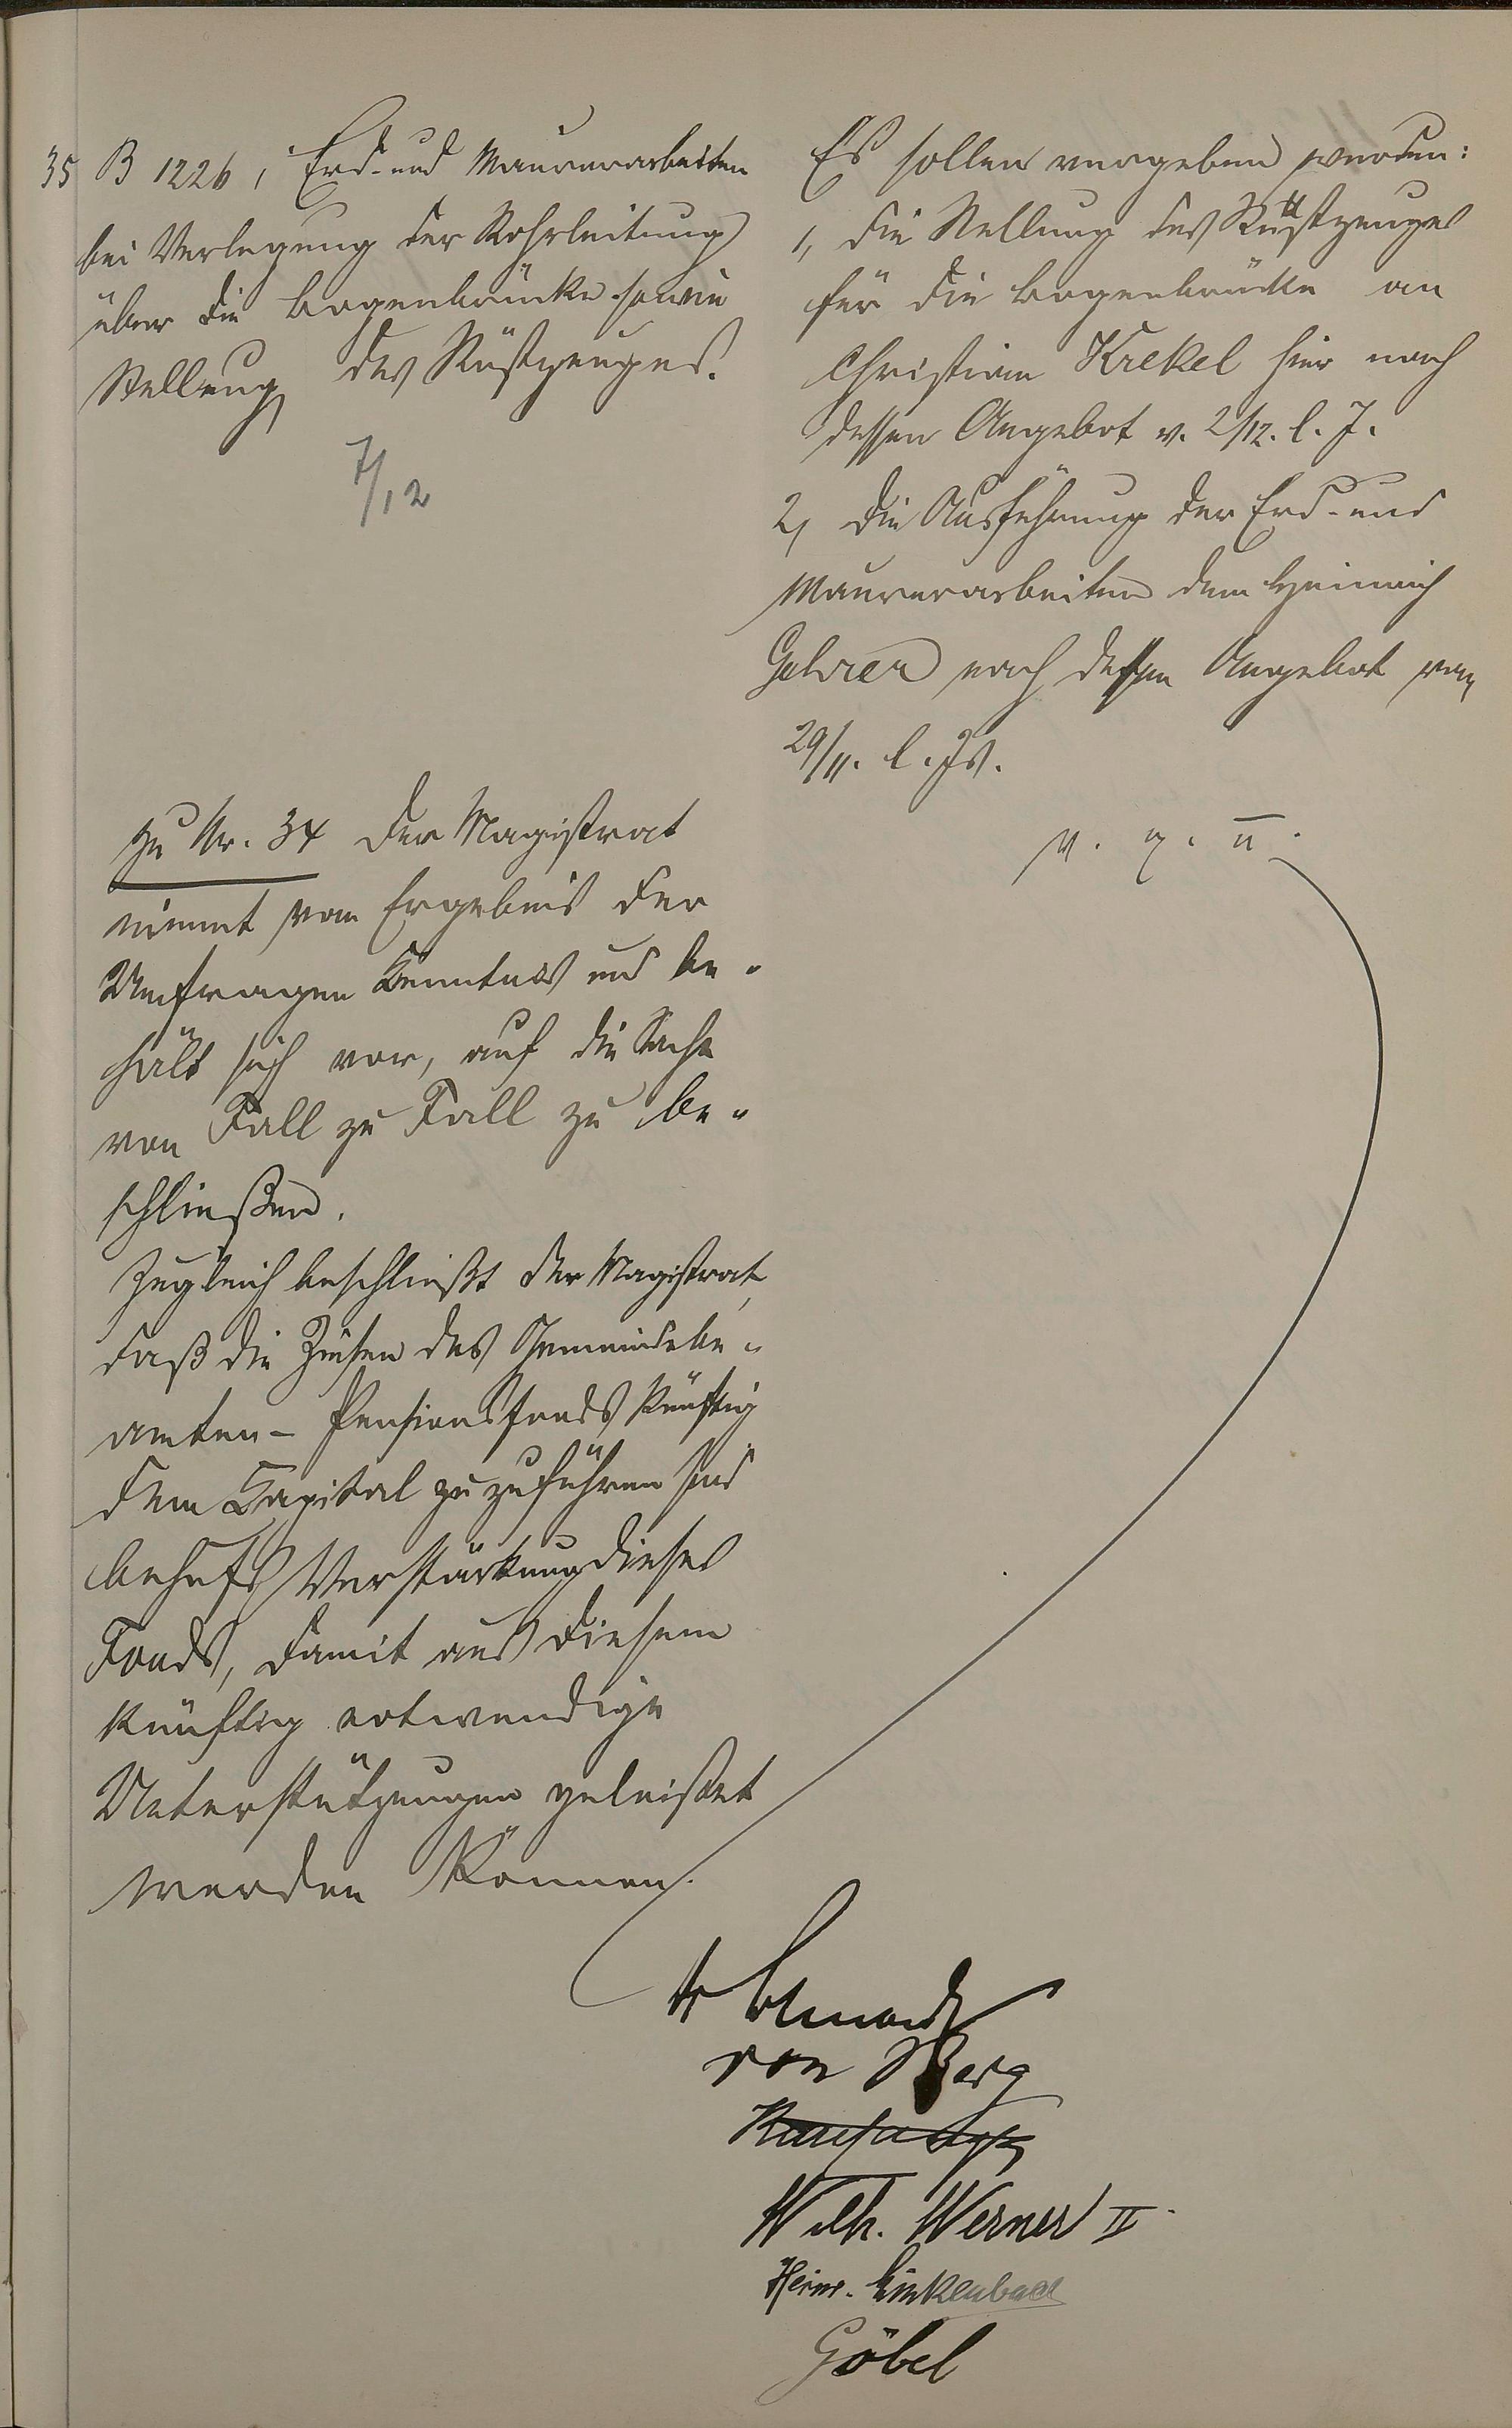 35 B 1226, Erd- und Maurerarbeiten
bei Verlegung der Rohrleitung
über die Bogenbrücke sowie
Stellung des Rüstzeuges.
7/12
Es sollen vergeben werden:
1, die Stellung des Rüstzeuges
für die Bogenbrücke an
Christian Krekel hier nach
dessen Angebot v. 2/12. l. J.
2, die Ausführung der Erd- und
Maurerarbeiten dem Heinrich
Gehrer nach dessen Angebot vom
29/11. l. Js.
v. g. u.
zu Nr. 34 Der Magistrat
nimmt vom Ergebnis der
Umfragen Kenntnis und be-
hält sich vor, auf die Sache
von Fall zu Fall zu be-
schließen.
Zugleich beschließt der Magistrat,
daß die Zinsen des Gemeindebe-
amten-Pensionsfonds künftig
dem Kapital zuzuführen sind
behufs Verstärkung dieses
Fonds, damit aus diesem
künftig notwendige
Unterstützungen geleistet
werden können.
von Berg
Wilh. Werner II
Heinr. Linkenbach
Göbel